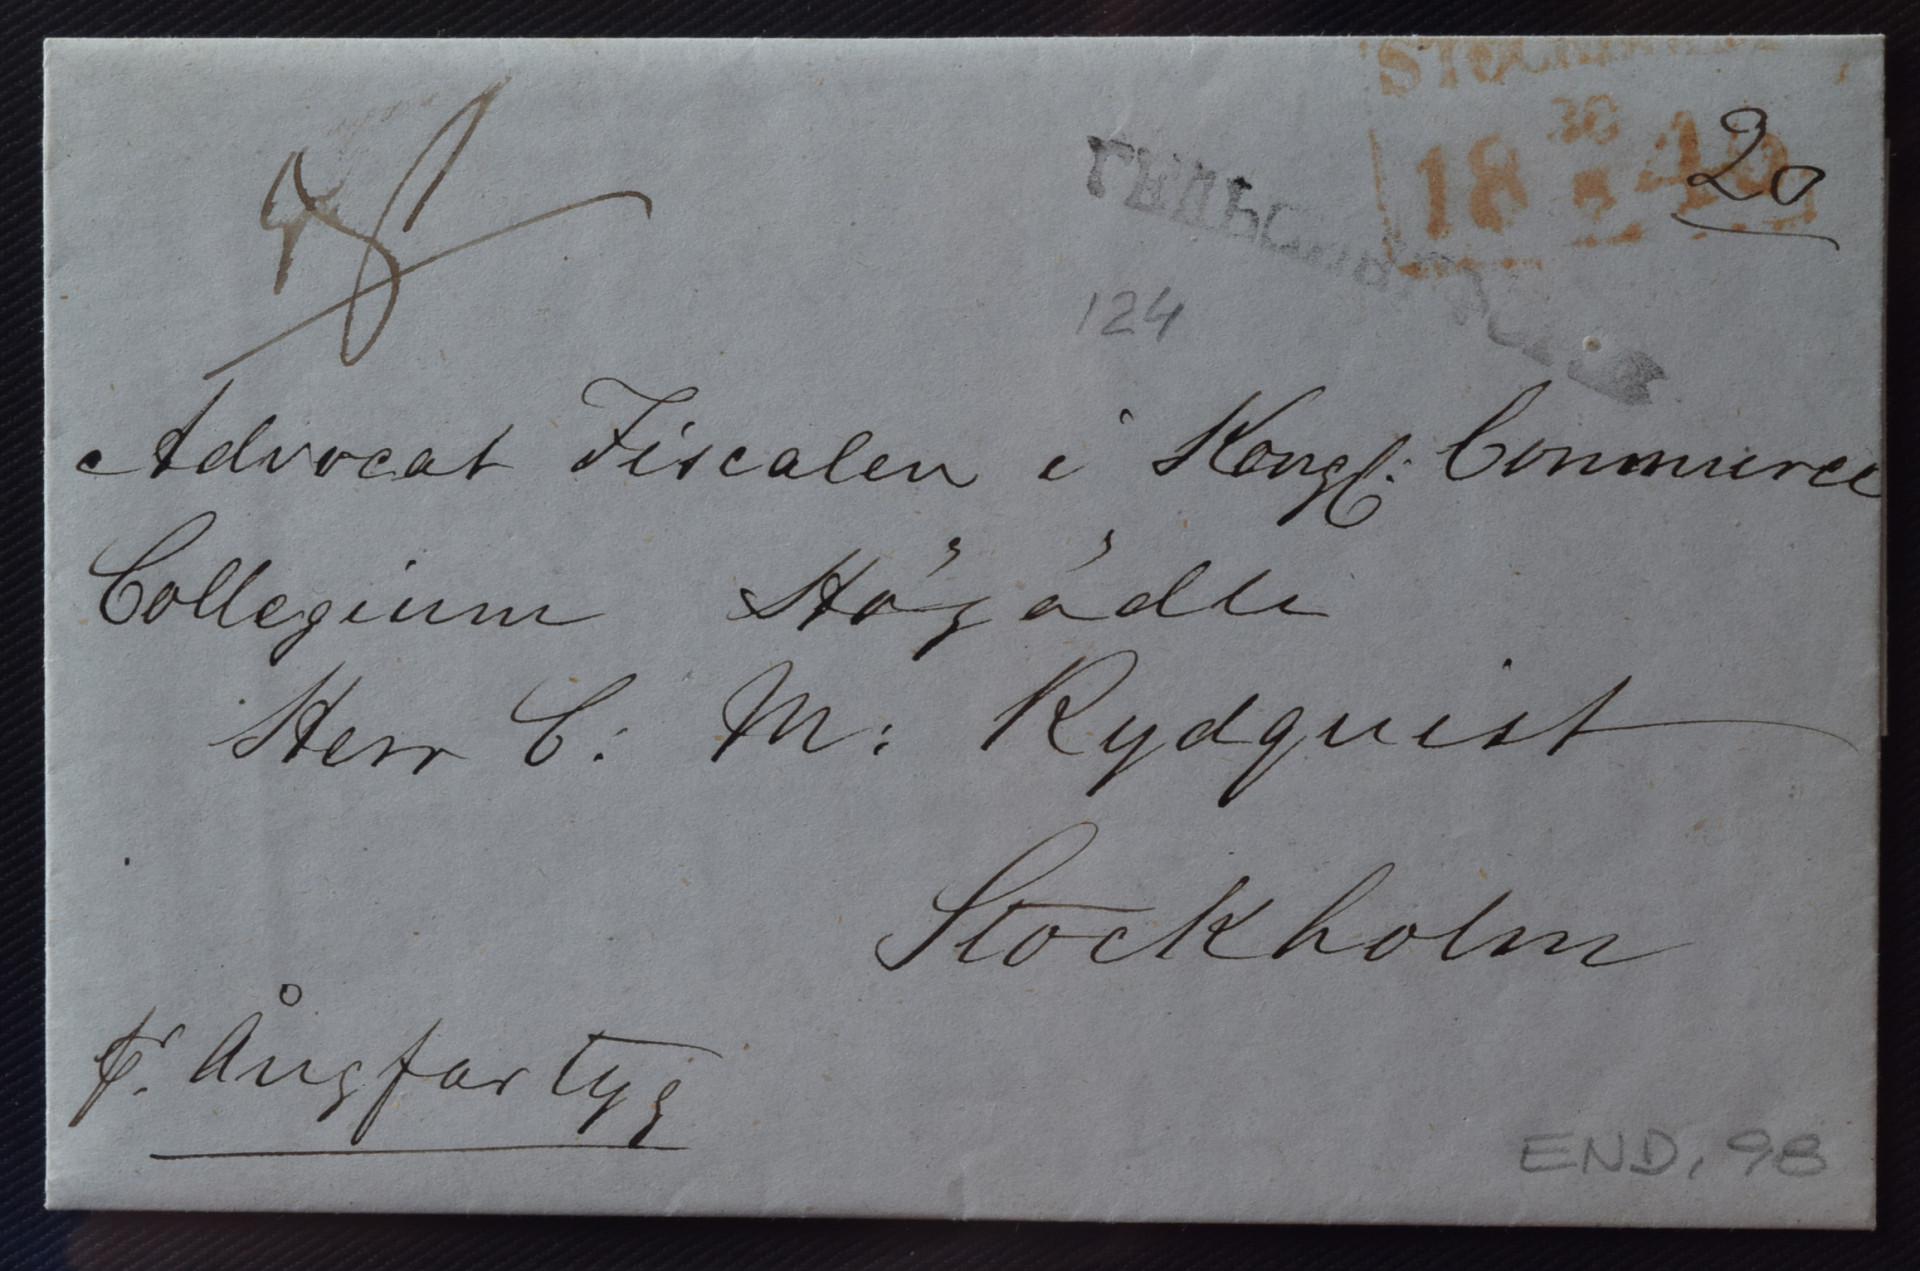 STOCKHOLM
30
18 49
20
124
Advocat Fiscalen i Kongl: Commerce
Collegium Högädle
Herr C: M: Rydquist
Stockholm
pr. Ångfartyg
END, 98